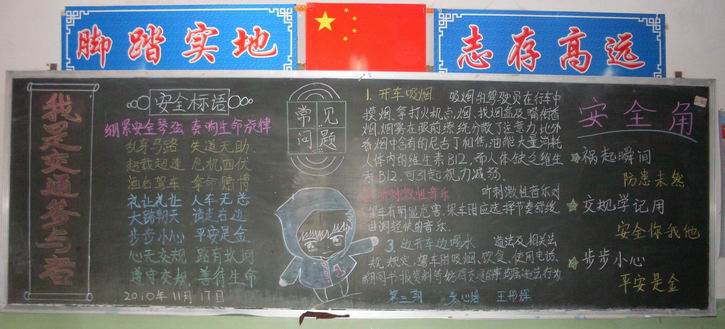 脚踏实地
志存高远
我是交通参与者
安全标语
绷紧安全琴弦 奏响生命旋律
乱穿马路 失道无助
超载超速 危机四伏
酒后驾车 拿命赌博
礼让礼让 人车无恙
大路朝天 请走右边
步步小心 平安是金
心无交规 路有坎坷
遵守交规 善待生命
2010年11月17日
常见
问题
1. 开车吸烟 吸烟的驾驶员在行车中
摸烟、拿打火机点烟、找烟盒及嘴衔香
烟、烟雾在眼前缭绕分散了注意力,此外
香烟中含有的尼古丁和焦油能大量消耗
人体内的维生素B12,而人体缺乏维生
素B12,可引起视力减弱。
2. 听刺激性音乐 听刺激性音乐对
驾车有明显危害,驾车时应选择节奏舒缓
曲调轻快的音乐。
3. 边开车边喝水 道法及相关法
规规定,驾车时吸烟、饮食、使用电话、
第三期
安全角
祸起瞬间
防患未然
交规学记用
安全你我他
步步小心
平安是金